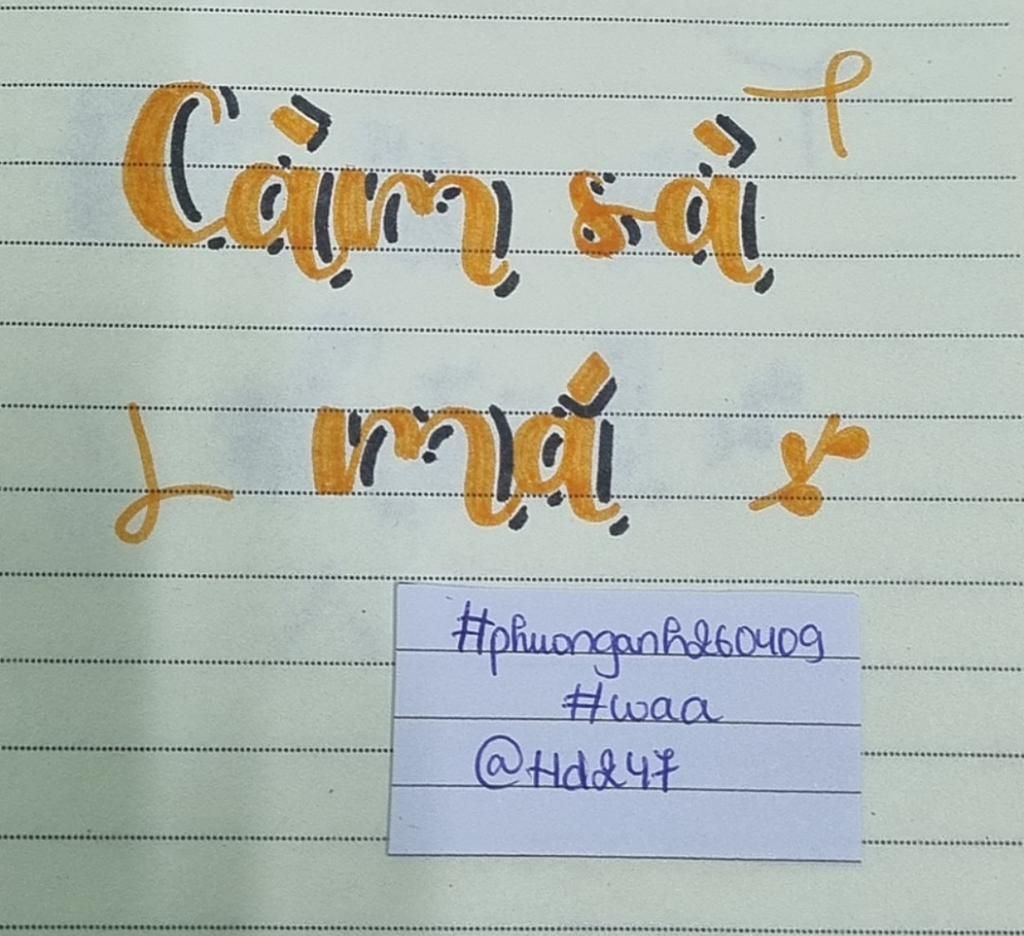 Càm sà
má
#phuonganh260409
#waa
@Hd247